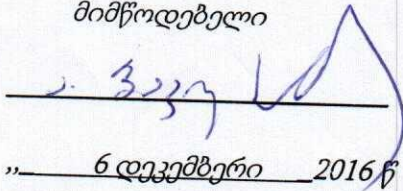 მიმწოდებელი
„ 6 დეკემბერი 2016 წ